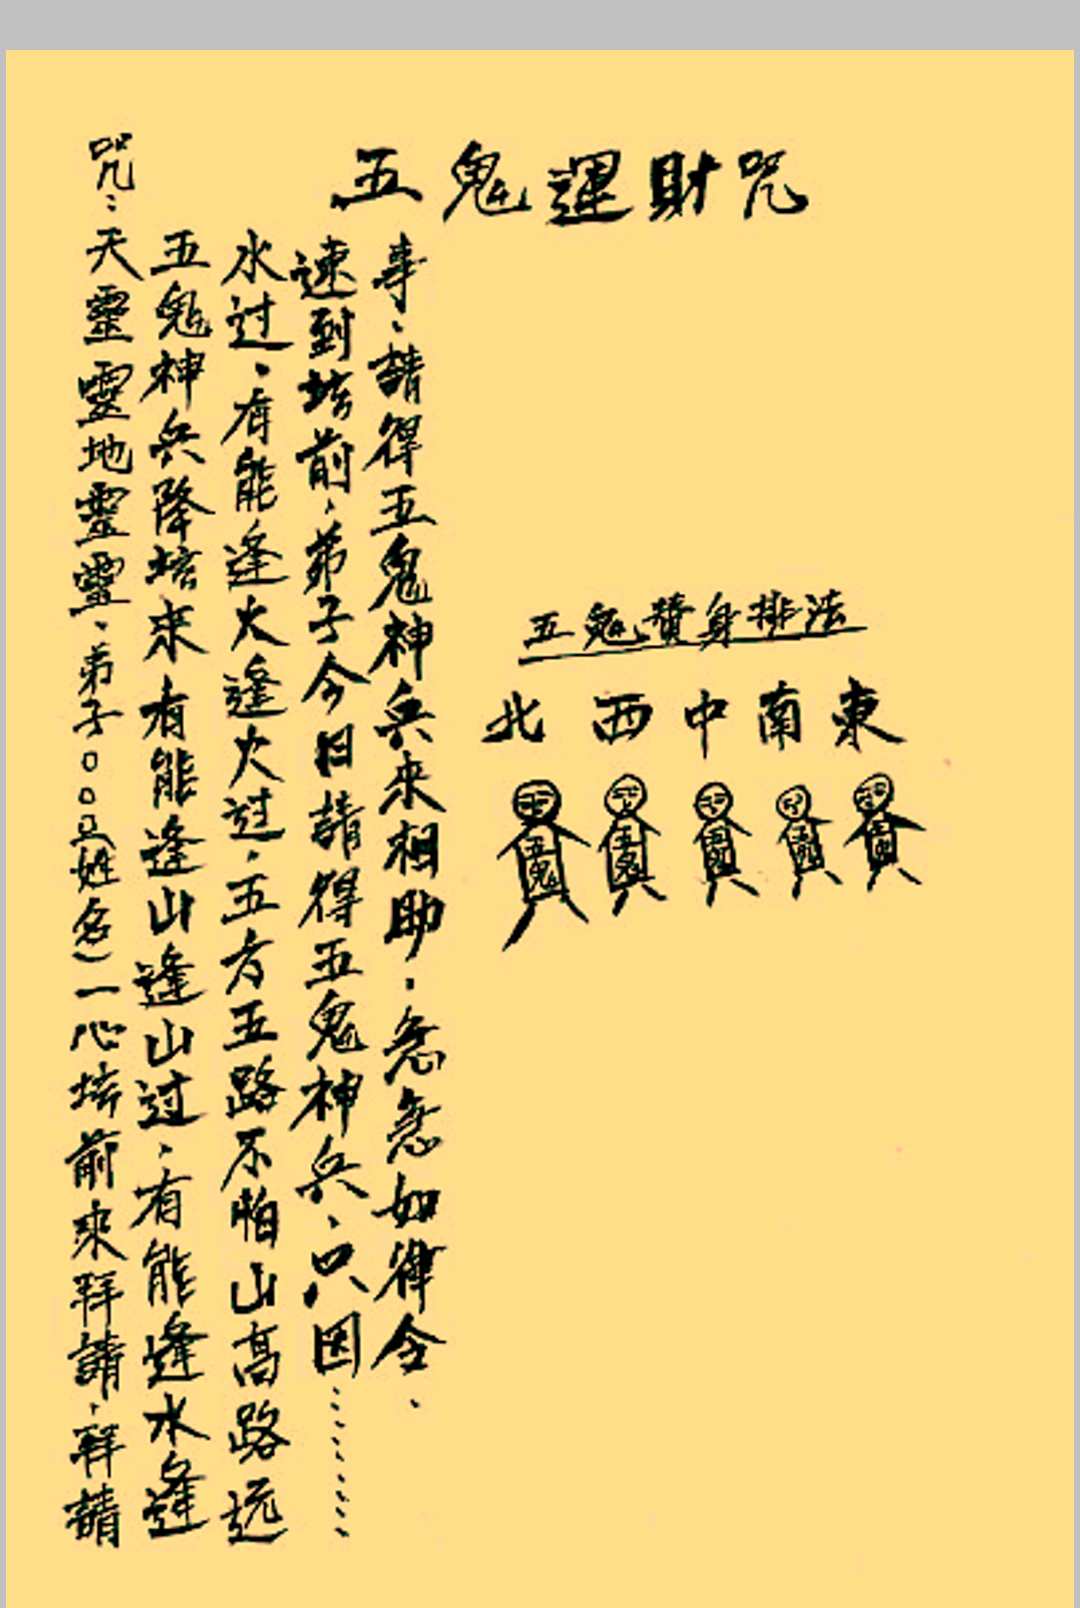 五鬼運財咒
咒：天靈靈地靈靈、弟子○○○（姓名）一心坛前來拜請、拜請
五鬼神兵降坛來有能逢山逢山过、有能逢水逢
水过、有能逢火逢火过、五方五路不怕山高路远
速到坛前、弟子今日請得五鬼神兵、只因………
事、請得五鬼神兵來相助、急急如律令、
五鬼替身排法
北 西 中 南 東
五鬼 五鬼 五鬼 五鬼 五鬼